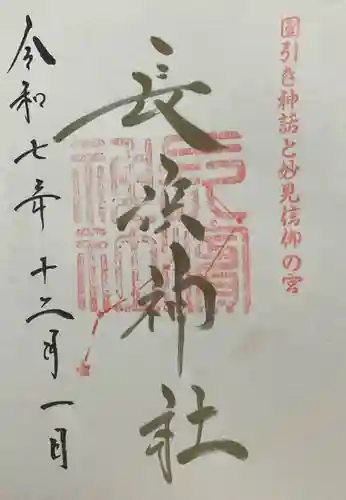 國引き神話と妙見信仰の宮
長浜神社
令和七年十二月一日